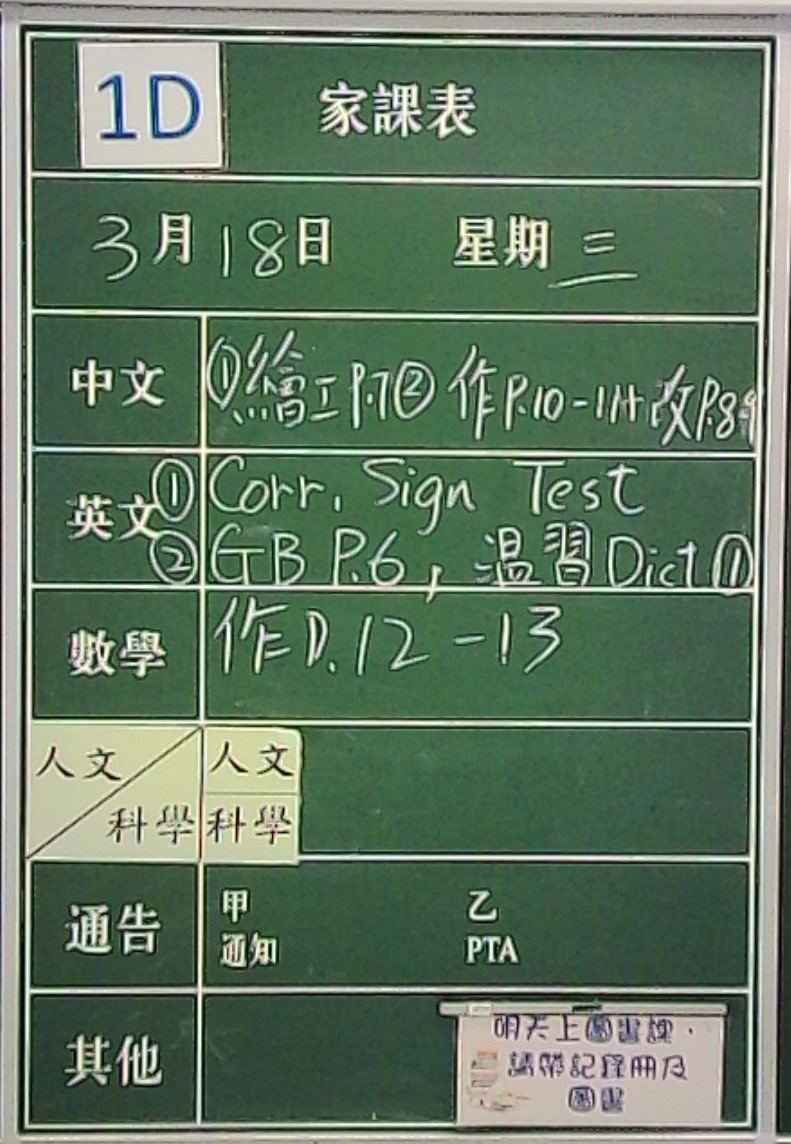 1D 家課表
3月18日 星期三
中文 ①繪工P.7② 作P.10-11+改P.8-9
英文 ①Corr. Sign Test
②GB P.6, 温習Dict①
數學 作P.12-13
人文 人文
科學 科學
通告 甲 乙
通知 PTA
其他
明天上圖書課,
請帶記錄冊及
圖書